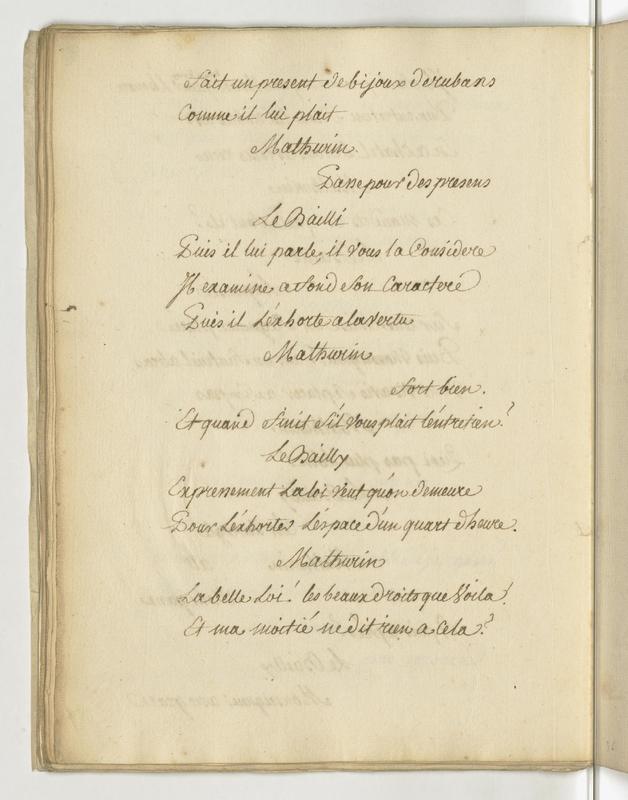 Fait un present de bijoux de rubans
Comme il lui plait
Mathurin.
Passe pour des presens
Le Bailli
Puis il lui parle, il vous la Considere
Il examine a fond son Caracteré
Puis il L'éxhorte a la vertu
Mathurin
Fort bien.
Et quand finit s'il vous plait l'éntretien?
Le Bailly
Expressement La loi veut qu'on demeure
Pour L'éxhorter L'éspace d'un quart d'heure.
Mathurin
La belle Loi! les beaux droits que Voila!
Et ma moitié ne dit rien a Cela?